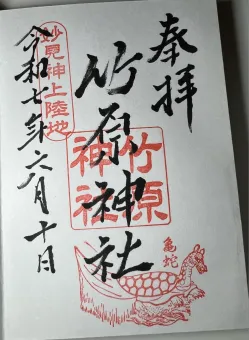 奉拝
竹原神社
竹原
神社
亀蛇
妙見神上陸地
令和七年六月十日